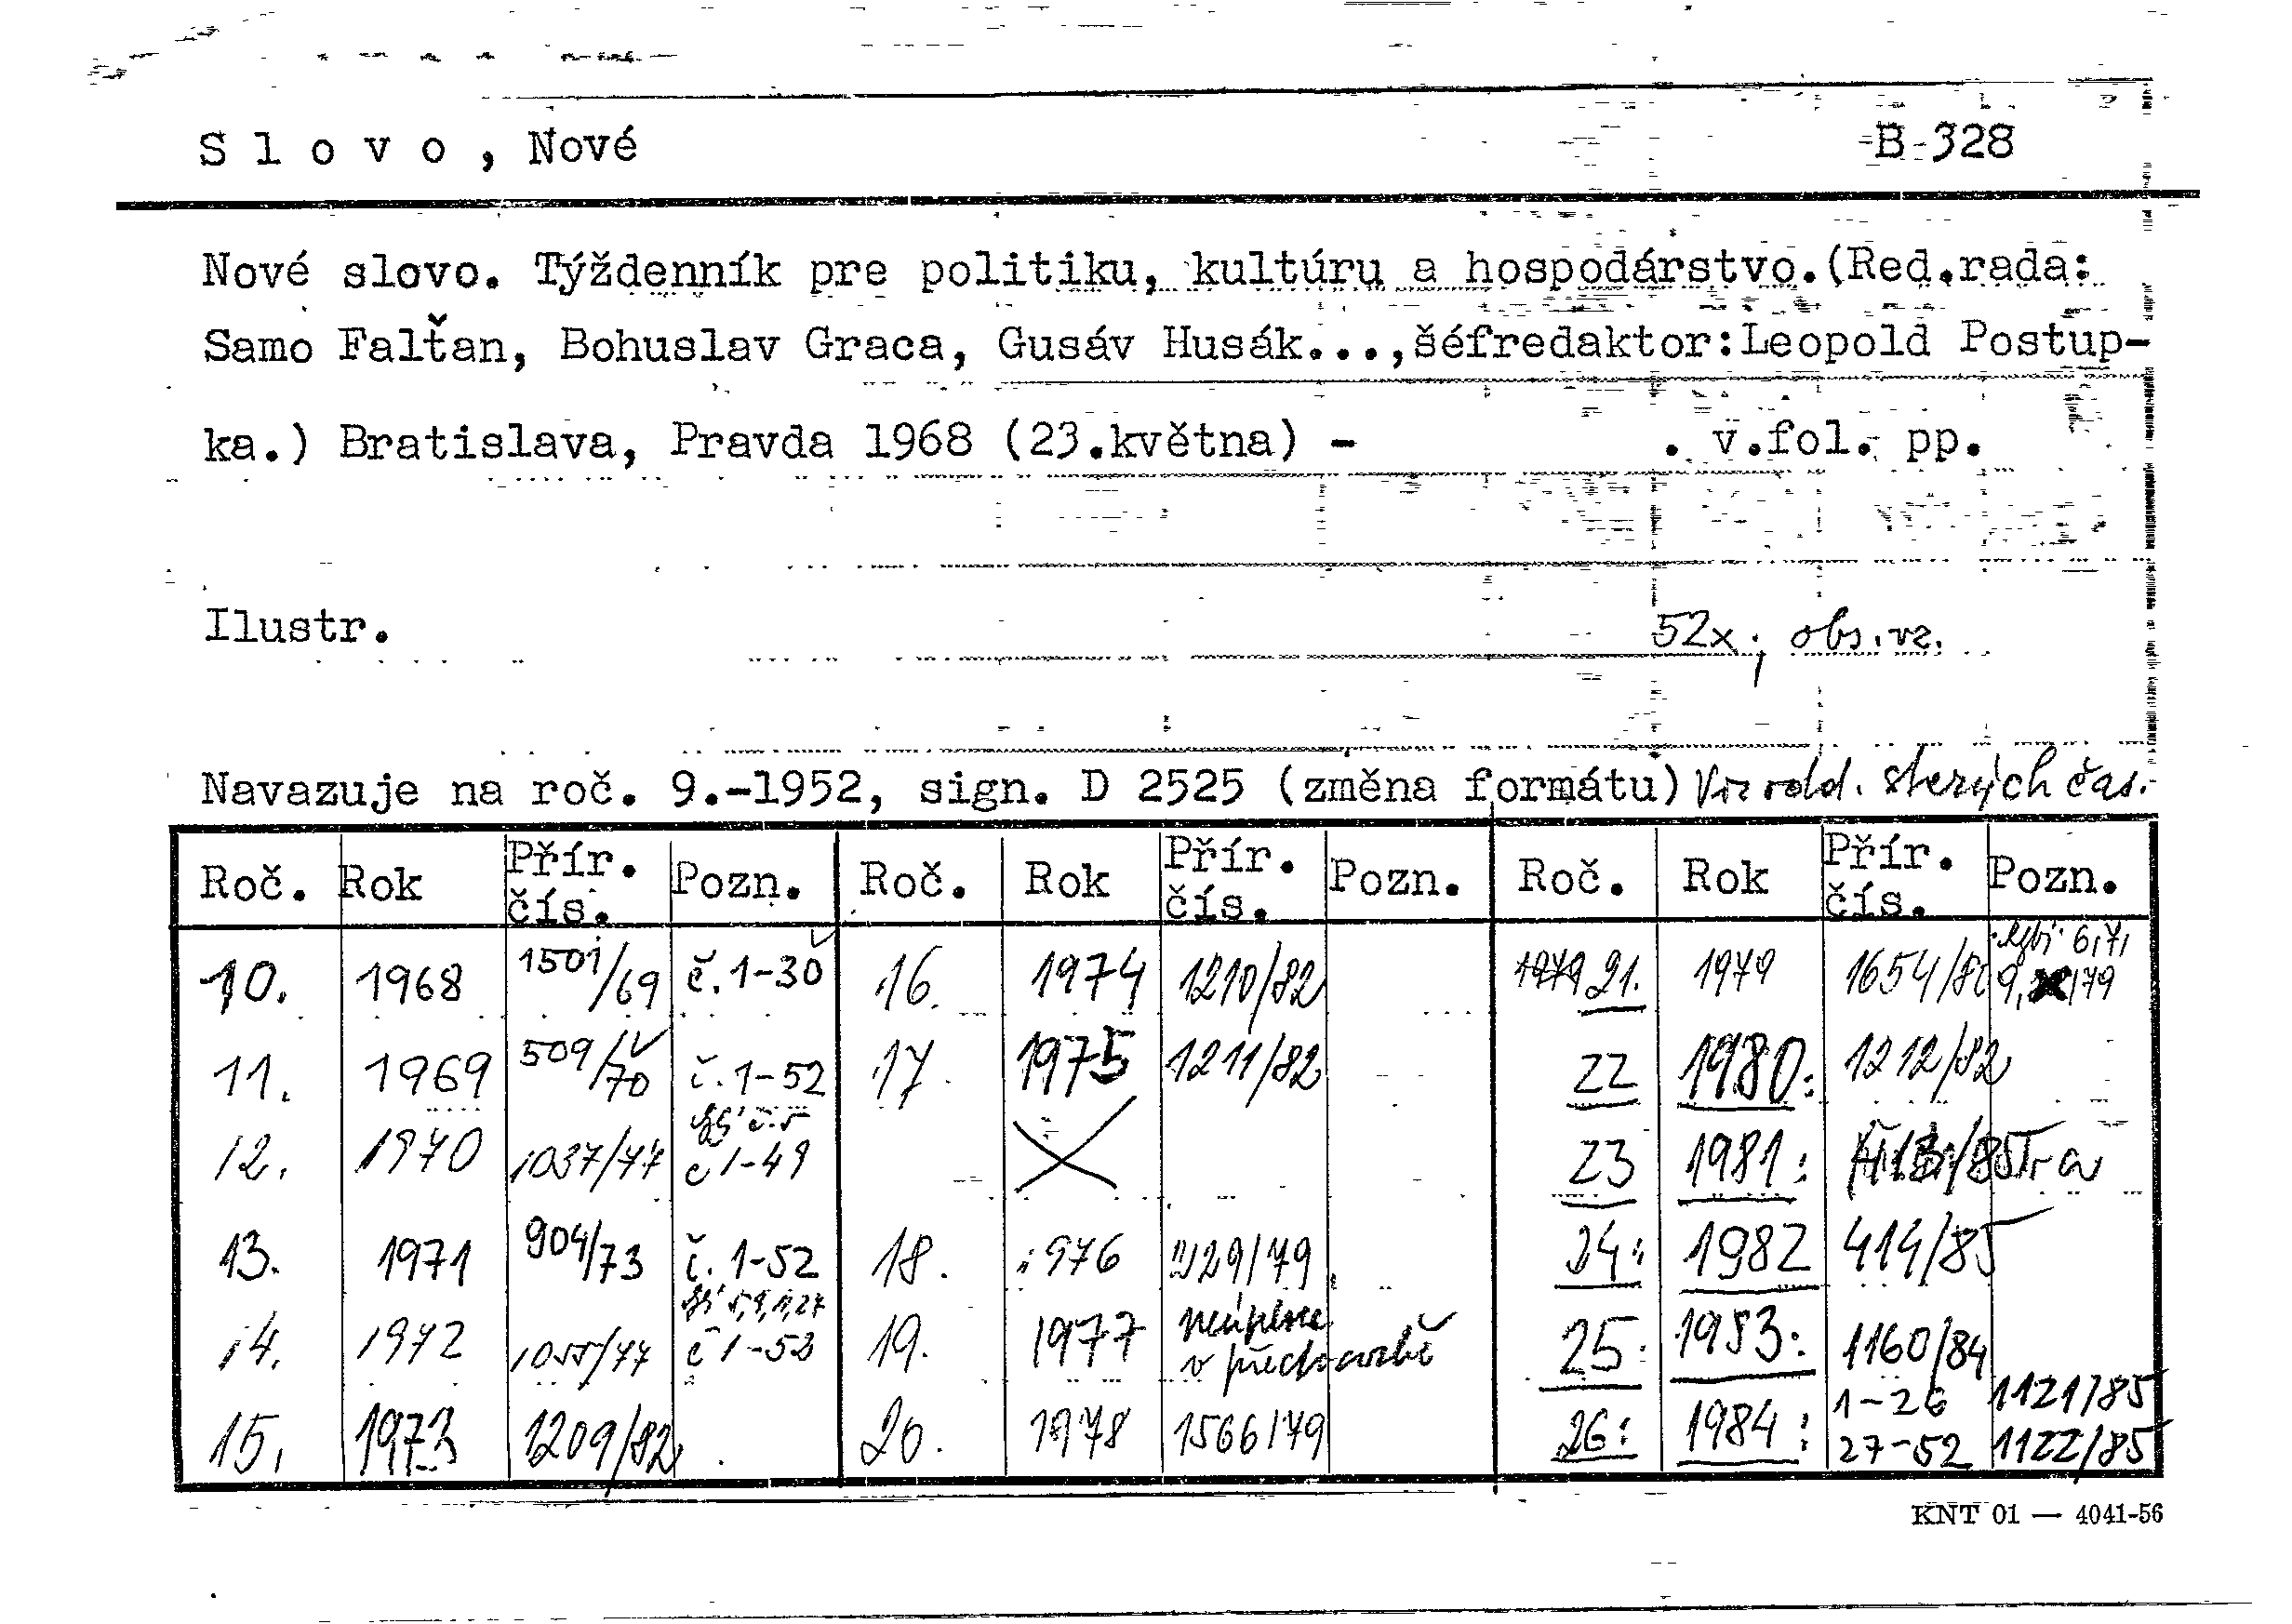 Slovo, Nové B 328
Nové slovo. Týždenník pre politiku, kultúru a hospodárstvo.(Red.rada:
Samo Falťan, Bohuslav Graca, Gusáv Husák...,šéfredaktor:Leopold Postup-
ka.) Bratislava, Pravda 1968 (23.května) - . v.fol. pp.
Ilustr. 52x; obs.vz.
Navazuje na roč. 9.-1952, sign. D 2525 (změna formátu) Viz odd. starých čas.
Roč. Rok Přír. čís. Pozn. Roč. Rok Přír. čís. Pozn. Roč. Rok Přír. čís. Pozn.
10. 1968 1501/69 č. 1-30 16. 1974 1210/82 1979 21. 1979 1654/80 chybí 6,7, 9, /79
11. 1969 509/70 č. 1-52 17. 1975 1211/82 22 1980: 1212/82
12. 1970 1037/77 č 1-49 23 1981: /85
13. 1971 904/73 č. 1-52 18. 1976 1129/79 24: 1982 414/85
14. 1972 1055/77 č 1-52 19. 1977 neúplné v předarchivě 25: 1983: 1160/84
15. 1973 1209/82 20. 1978 1566/79 26: 1984: 1-26 1121/85
27-52 1122/85
KNT 01 — 4041-56